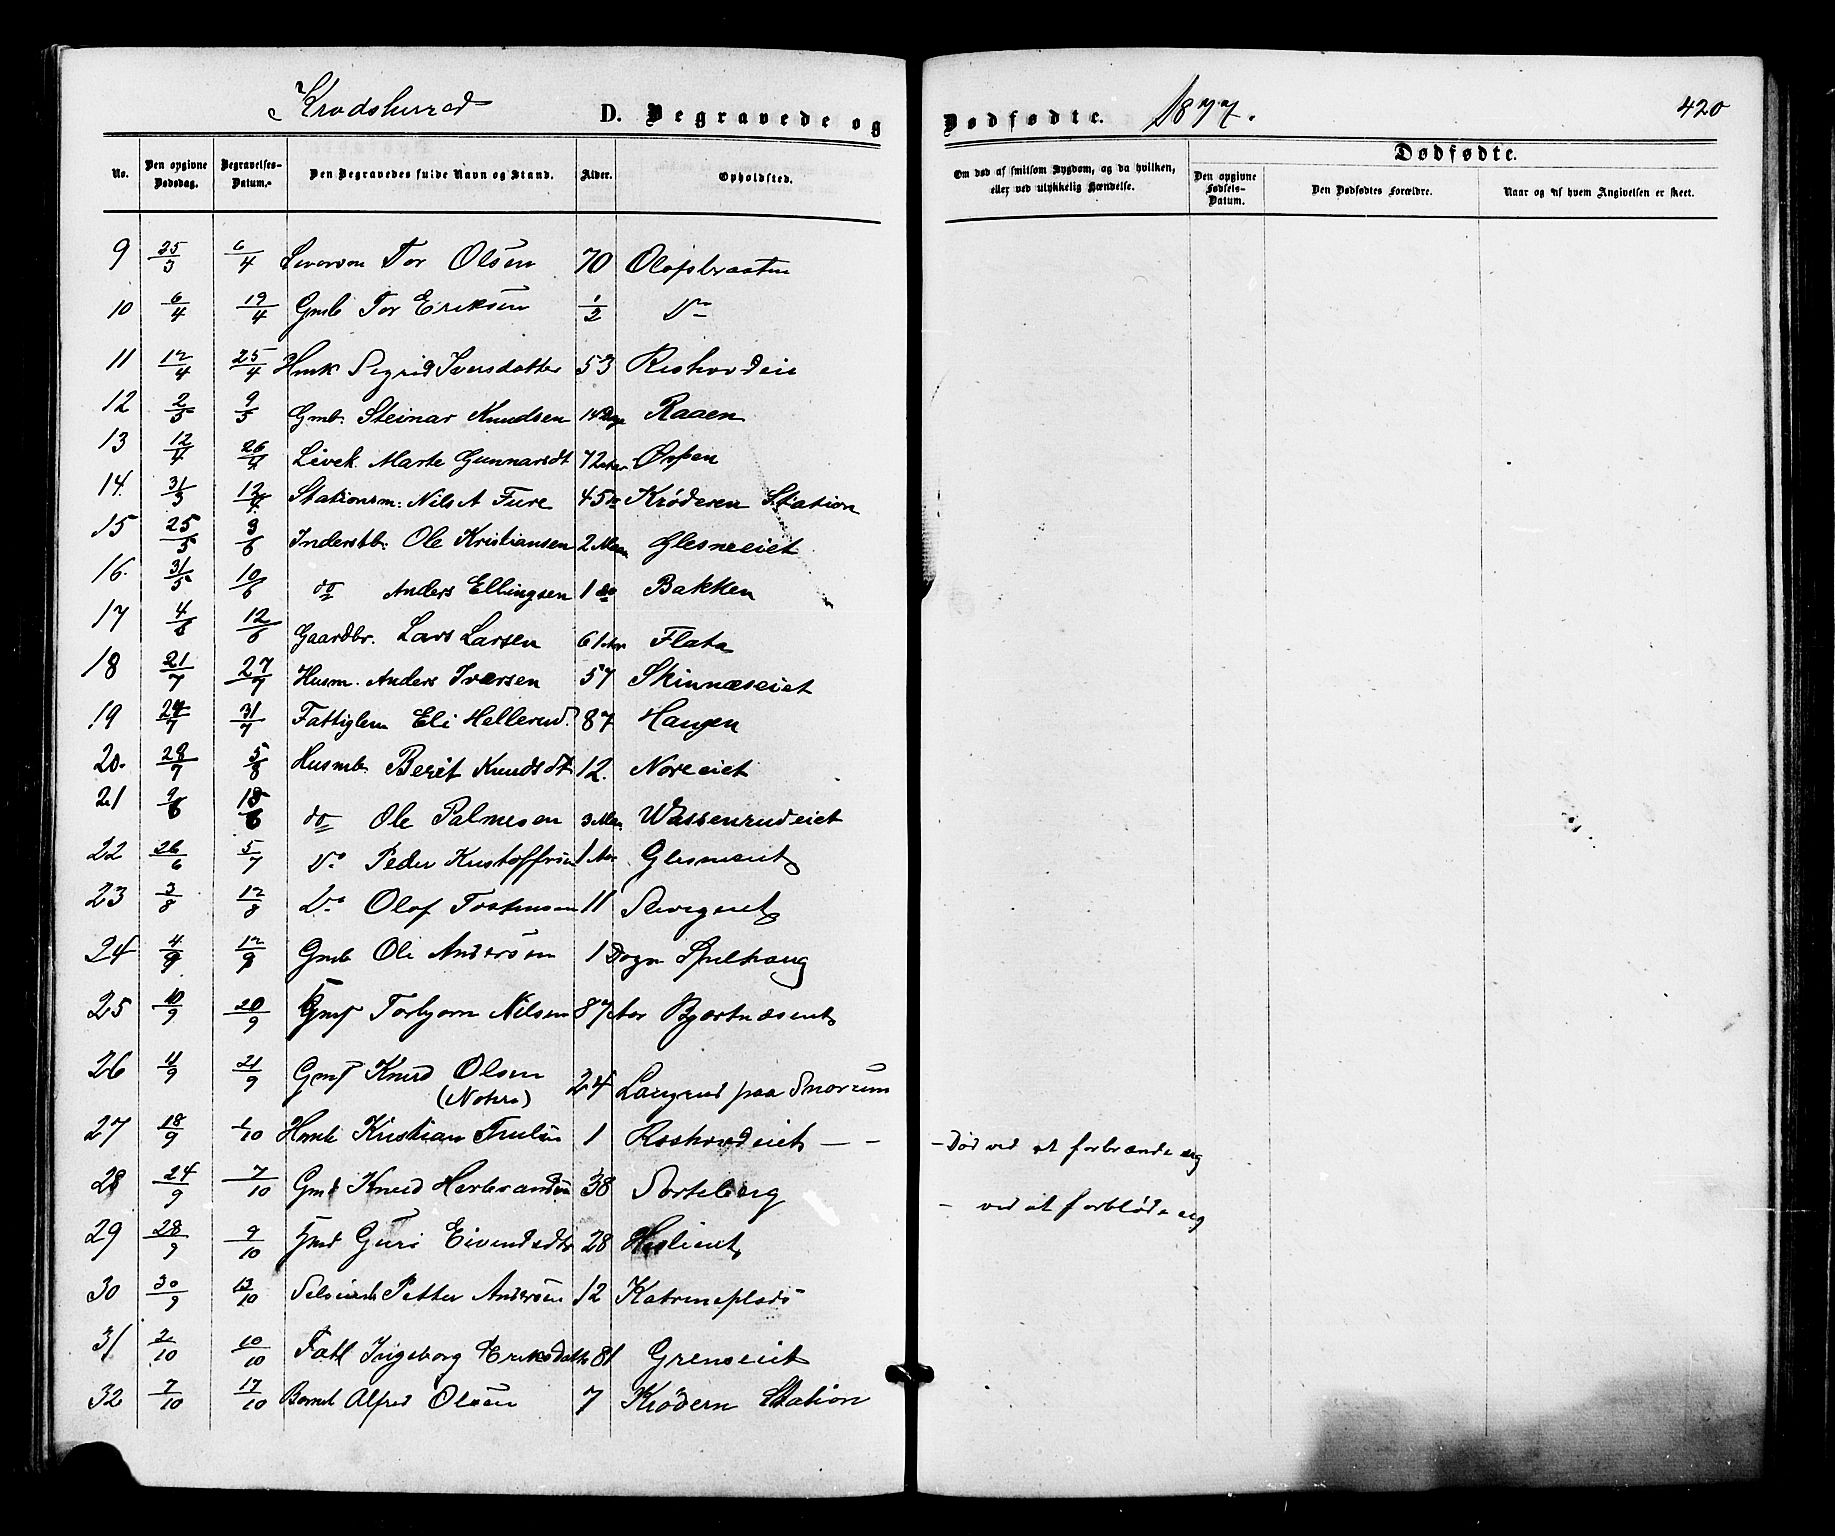 Krødsherred D. Begravede og Dødfødte. 1877. 420
No. Den opgivne Dødsdag. Begravelses-Datum. Den Begravedes fulde Navn og Stand. Alder. Opholdsted. Om død af smitsom Sygdom, og da hvilken, eller ved ulykkelig Hændelse. Dødfødte. Den opgivne Fødsels-Datum. Den Dødfødtes Forældre. Naar og af hvem Angivelsen er skeet.
9 25/3 6/4 Tor Olsen 70 Olofsbraaten
10 6/4 19/4 Gmb Tor Eriksen 1/2 Do
11 17/4 25/4 Hmk Sigrid Iversdatter 53 Reshovdeie
12 2/5 9/5 Gmb. Steinar Knudsen 14 Dage Raaen
13 12/4 26/4 Levek. Marte Gunnarsdt 72 Aar Ørpen
14. 31/3 12/4 Stationsm: Nils A Fure 45 Krøderen Station
15 25/5 3/6 Inderstb: Ole Kristiansen 2 Maan Glesneeiet
16. 31/5 10/6 do Anders Ellingsen 1 do Bakken
17 4/6 12/6 Gaardbr. Lars Larsen 61 Aar Flata
18 21/7 27/7 Husm. Anders Iversen 57 Skinnæseiet
19 24/7 31/7 Fattiglem Eli Hellerud. 87 Haugen
20. 28/7 5/8 Husmb. Berit Knudsdt 12. Noreeiet
21 9/6 18/6 do Ole Palmesen 3 Maan. Wassenrudeiet
22 26/6 5/7 Do Peder Kristoffersen 1 Aar Glesneeiet
23 3/8 12/8 Do Olof Tostensen 11
24 4/9 12/9 Gmb Ole Andersen 1 Døgn
25 10/9 20/9 Gmf Torbjørn Nilsen 87 Aar Bjertnæseiet
26 11/9 21/9 Gmf Knud Olsen 24 Langerud paa Snorum
(Nohre)
27 18/9 1/10 Hmb Kristian Trulsen 1 Reshovdeiet – – – Død ved at forbrænde sig
28 24/9 7/10 Gmd Knud Herbrandsen 38 Sorteberg – ved at forbløde sig
29 28/9 9/10 Gmd Guri Eivendsdtr 28 Haslieiet
30 30/9 13/10 Petter Andersen 12 Katrineplads
31 2/10 10/10 Fatl Ingeborg Eriksdatter 81 Grenseiet
32 7/10 17/10 Alfred Olsen 7 Krødern Station